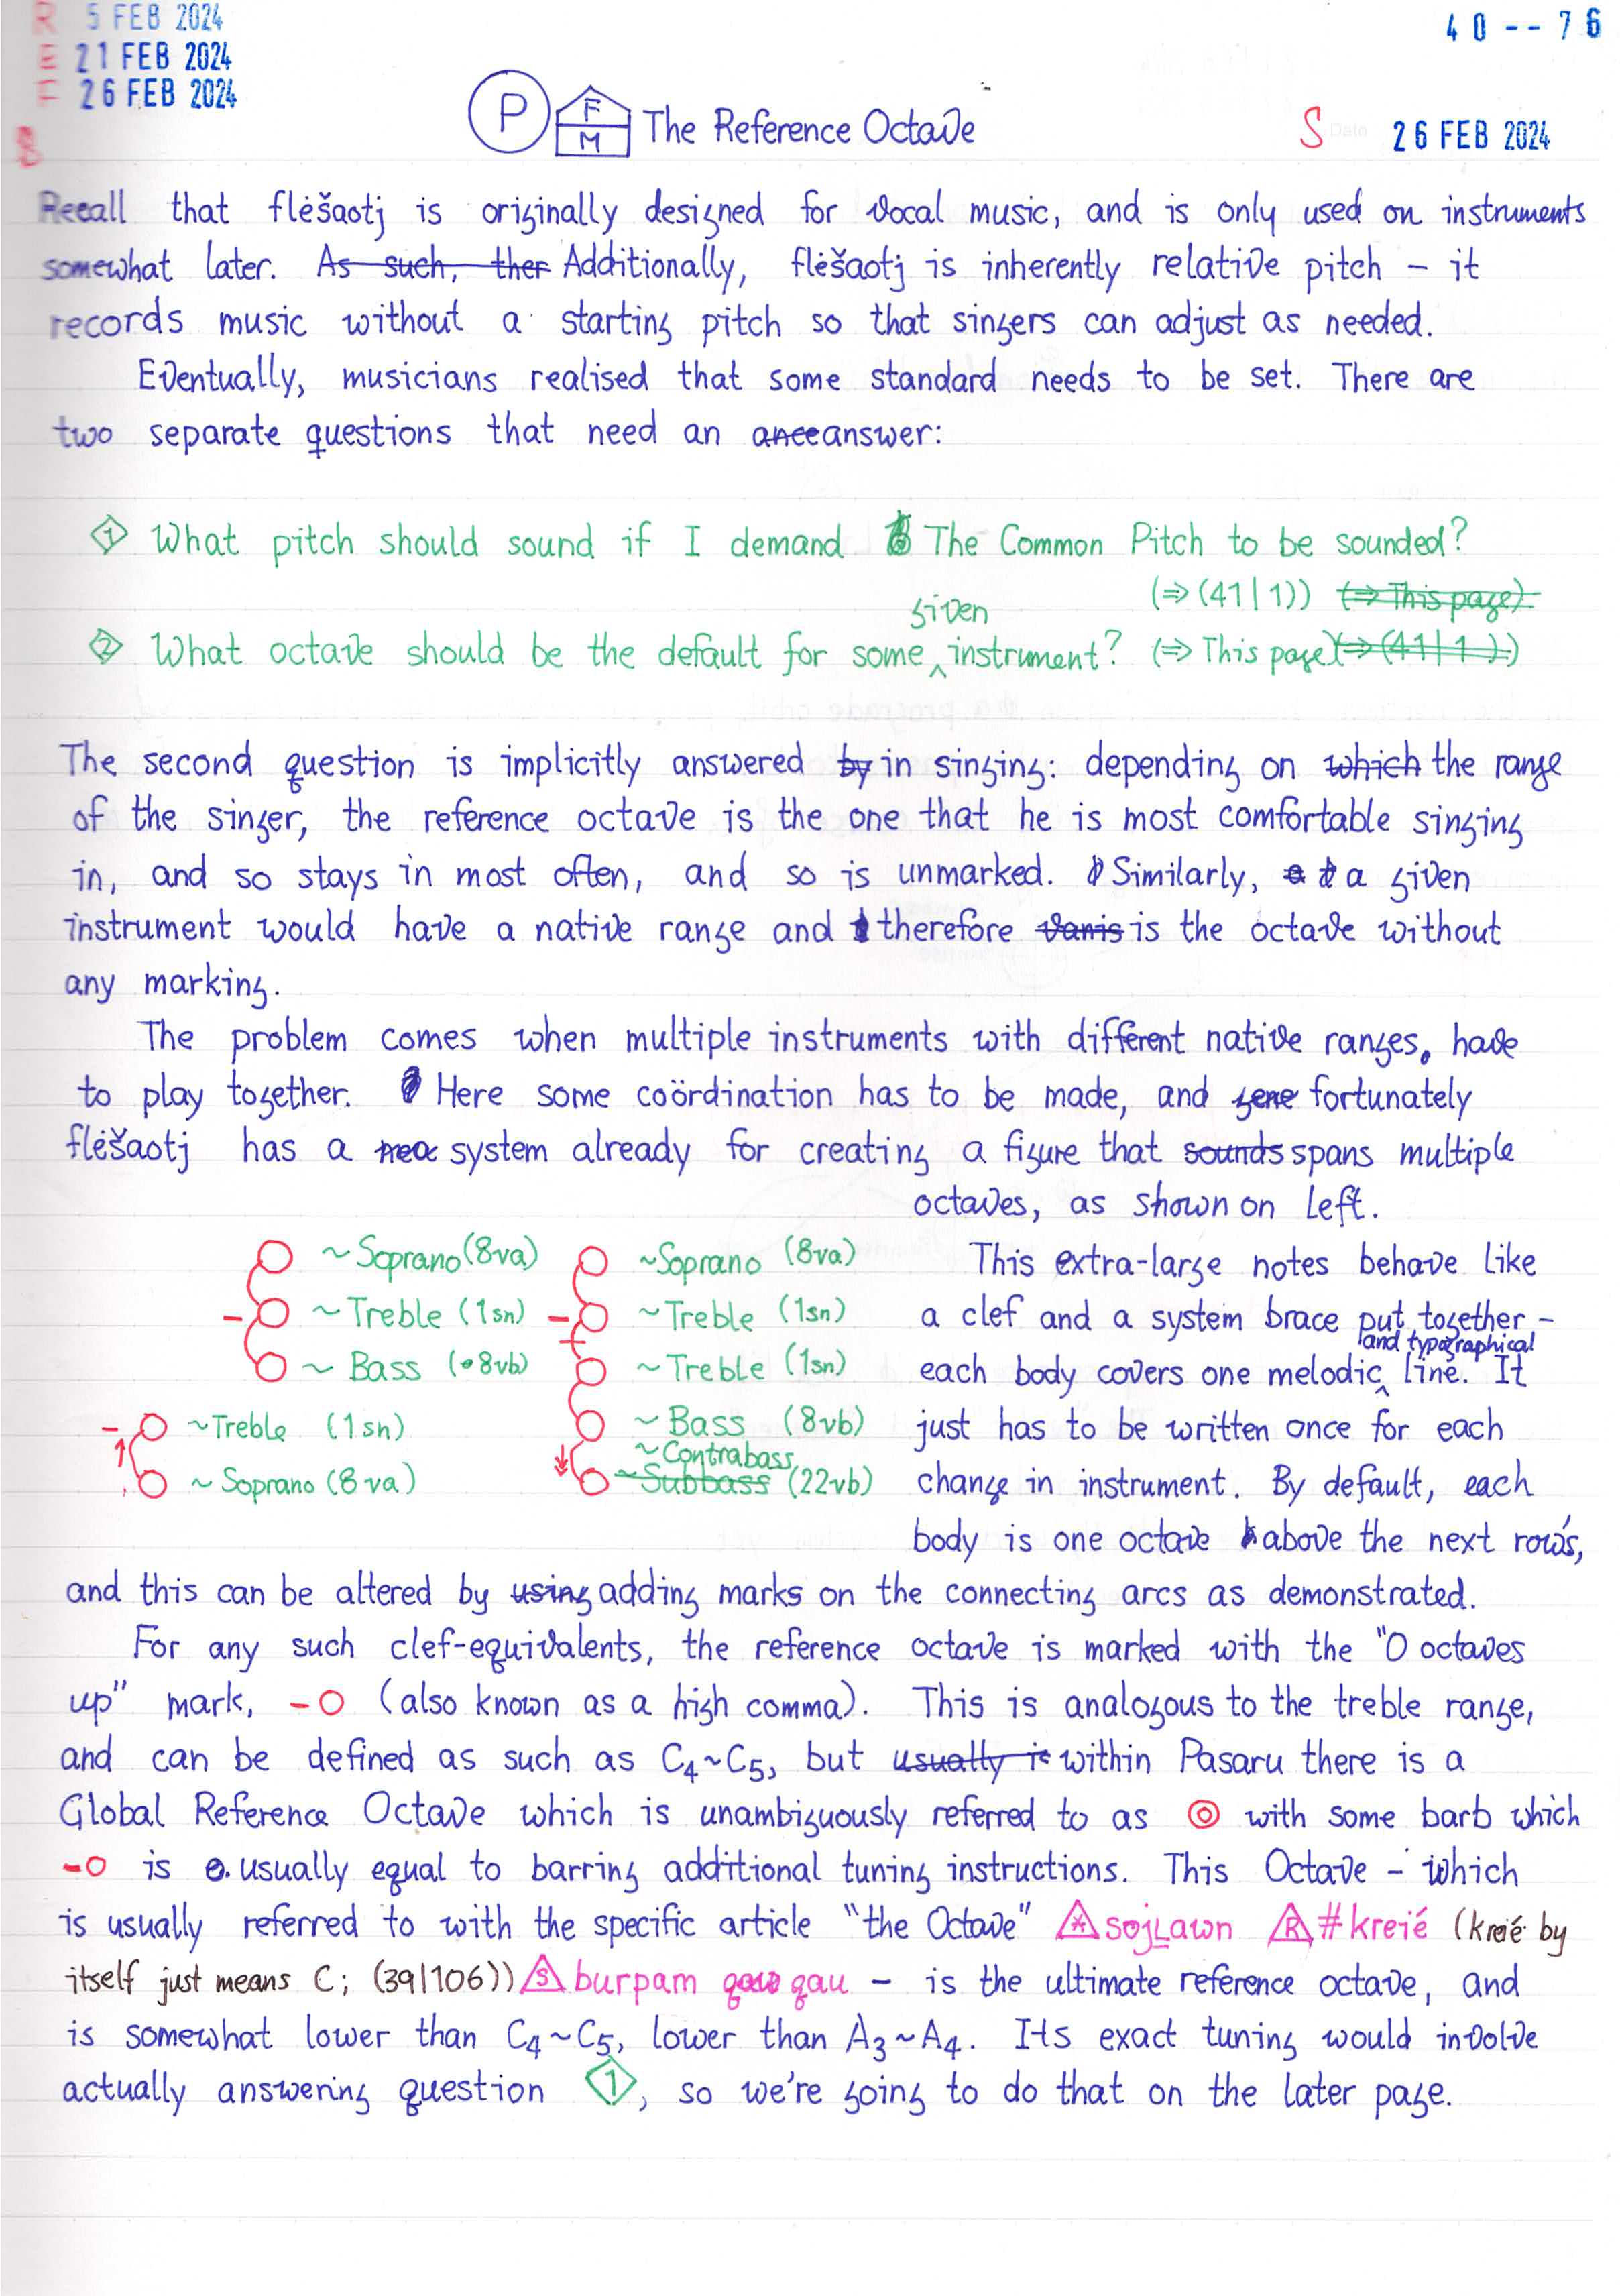 R 5 FEB 2024
E 21 FEB 2024
F 26 FEB 2024
40--76
P F M The Reference Octave
S 26 FEB 2024
Recall that flėšaotj is originally designed for vocal music, and is only used on instruments
somewhat later. As such, ther Additionally, flėšaotj is inherently relative pitch – it
records music without a starting pitch so that singers can adjust as needed.
Eventually, musicians realised that some standard needs to be set. There are
two separate questions that need an ance answer:
1 What pitch should sound if I demand The Common Pitch to be sounded?
(⇒ (41|1)) (⇒ This page)
given
2 What octave should be the default for some ‸ instrument? (⇒ This page) (⇒ (41|1))
The second question is implicitly answered by in singing: depending on which the range
of the singer, the reference octave is the one that he is most comfortable singing
in, and so stays in most often, and so is unmarked. Similarly, a given
instrument would have a native range and therefore is the octave without
any marking.
The problem comes when multiple instruments with different native ranges, have
to play together. Here some coördination has to be made, and fortunately
flėšaotj has a system already for creating a figure that sounds spans multiple
octaves, as shown on left.
~Soprano (8va) ~Soprano (8va) This extra-large notes behave like
~Treble (1sn) ~Treble (1sn) a clef and a system brace put together –
and typographical
~Bass (8vb) ~Treble (1sn) each body covers one melodic ‸ line. It
~Treble (1sn) ~Bass (8vb) just has to be written once for each
~Contrabass
~Soprano (8va) ~Subbass (22vb) change in instrument. By default, each
body is one octave above the next row's,
and this can be altered by using adding marks on the connecting arcs as demonstrated.
For any such clef-equivalents, the reference octave is marked with the "0 octaves
up" mark, -○ (also known as a high comma). This is analogous to the treble range,
and can be defined as such as C₄~C₅, but usually is within Pasaru there is a
Global Reference Octave which is unambiguously referred to as ◎ with some barb which
-○ is usually equal to barring additional tuning instructions. This Octave – which
is usually referred to with the specific article "the Octave" sojLawn R #kreié (kreié by
itself just means C; (39|106)) S burpam qau – is the ultimate reference octave, and
is somewhat lower than C₄~C₅, lower than A₃~A₄. Its exact tuning would involve
actually answering question 1, so we're going to do that on the later page.